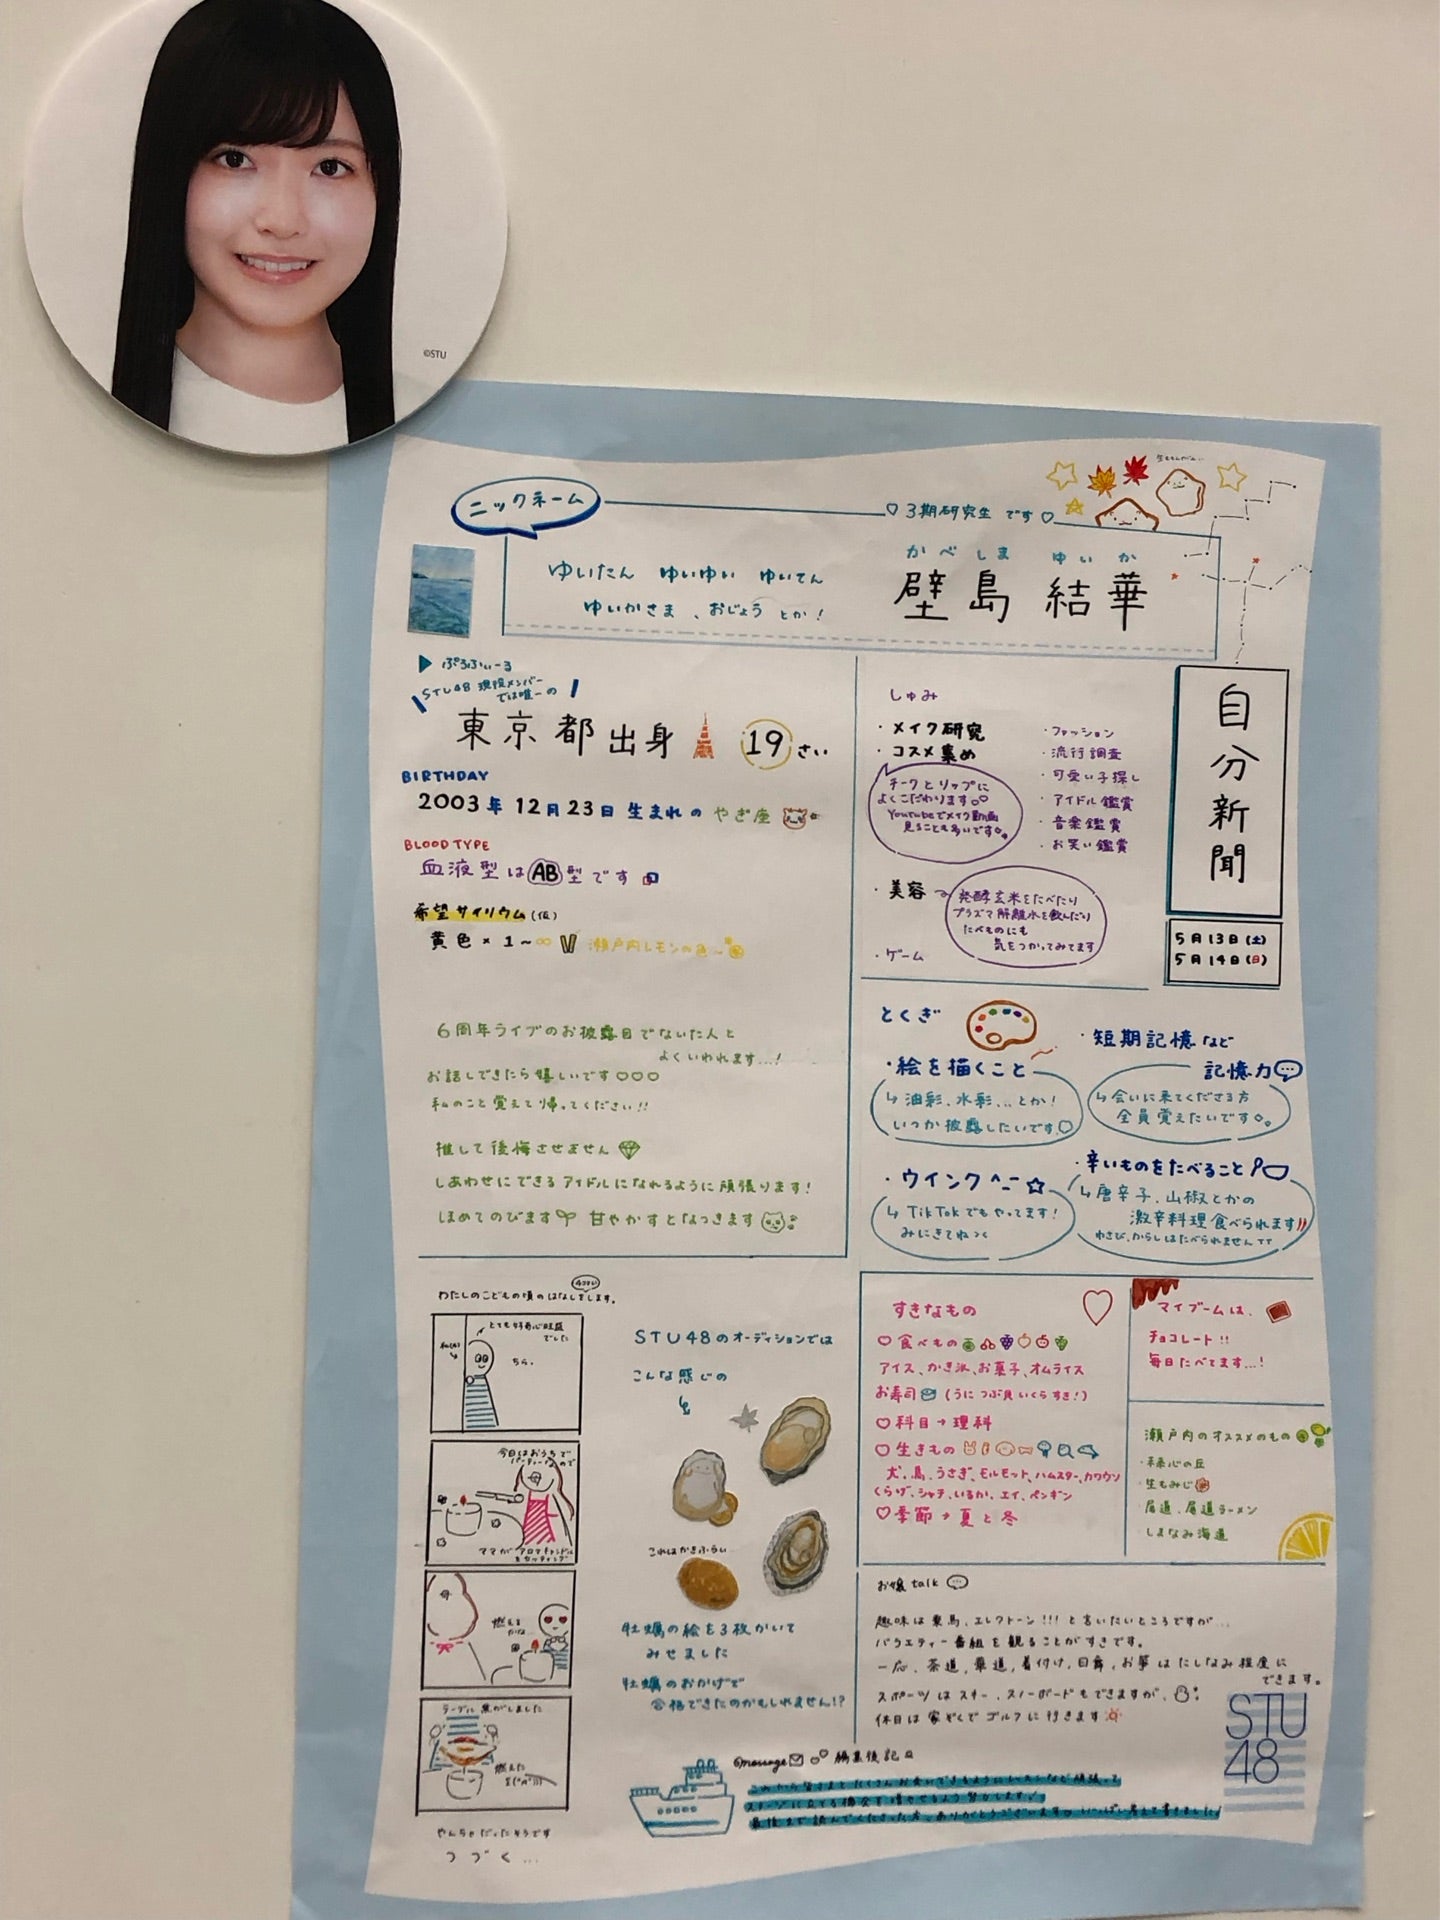 ©STU
ニックネーム
♡3期研究生 です♡
ゆいたん ゆいゆい ゆいてん
ゆいかさま、おじょう とか!
かべしま ゆいか
壁島 結華
▶ぷろふぃーる
STU48 現役メンバー
では唯一の
東京都出身 19さい
BIRTHDAY
2003年12月23日生まれの やぎ座
BLOOD TYPE
血液型はAB型です
希望サイリウム(仮)
黄色×1~∞ 瀬戸内レモンの色~
6周年ライブのお披露目でないた人と
よくいわれます...!
お話しできたら嬉しいです♡♡♡
私のこと覚えて帰ってください!!
推して後悔させません
しあわせにできるアイドルになれるように頑張ります!
ほめてのびます 甘やかすとなつきます
しゅみ
・メイク研究
・コスメ集め
チークとリップに
よくこだわります♡♡
Youtubeでメイク動画
見ることも多いです
・美容
発酵玄米をたべたり
プラズマ解離水を飲んだり
たべものにも
気をつかってみてます
・ゲーム
・ファッション
・流行調査
・可愛い子探し
・アイドル鑑賞
・音楽鑑賞
・お笑い鑑賞
自分新聞
5月13日(土)
5月14日(日)
とくぎ
・絵を描くこと
↳油彩、水彩、...とか!
いつか披露したいです♡
・短期記憶など
記憶力
↳会いに来てくださる方
全員覚えたいです
・ウインク^_-☆
↳TikTokでもやってます!
みにきてねっ
・辛いものをたべること
↳唐辛子、山椒とかの
激辛料理食べられます!!
わさび、からしはたべられませんTT
わたしのこどもの頃のはなしをします。
4コマ
とても好奇心旺盛
でした
ちら。
今日はおうちで
パーティーなので
ママがアロマキャンドル
をセッティング
燃える
かな…
テーブル焦がしました
燃えた
やんちゃだったそうです
つづく...
STU48のオーディションでは
こんな感じの
これはかきふらい
牡蠣の絵を3枚かいて
みせました
牡蠣のおかげで
合格できたのかもしれません!?
すきなもの
♡食べもの
アイス、かき氷、お菓子、オムライス
お寿司(うに つぶ貝 いくら すき!)
♡科目→理科
♡生きもの
犬、鳥、うさぎ、モルモット、ハムスター、カワウソ
くらげ、シャチ、いるか、エイ、ペンギン
♡季節→夏と冬
マイブームは、
チョコレート!!
毎日たべてます...!
瀬戸内のオススメのもの
・未来心の丘
・生もみじ
・尾道、尾道ラーメン
・しまなみ海道
お嬢talk
趣味は乗馬、エレクトーン!!!と言いたいところですが...
バラエティー番組を観ることがすきです。
一応、茶道、華道、着付け、日舞、お箏はたしなみ程度に
できます。
スポーツはスキー、スノーボードもできますが、
休日は家ぞくでゴルフに行きます
STU
48
message 編集後記
これから皆さまとたくさんお会いできるようにレッスンなど頑張って
ステージに立てる機会を増やせるよう努力します!
最後まで読んでくださった方、ありがとうございます いっぱい考えて書きました!